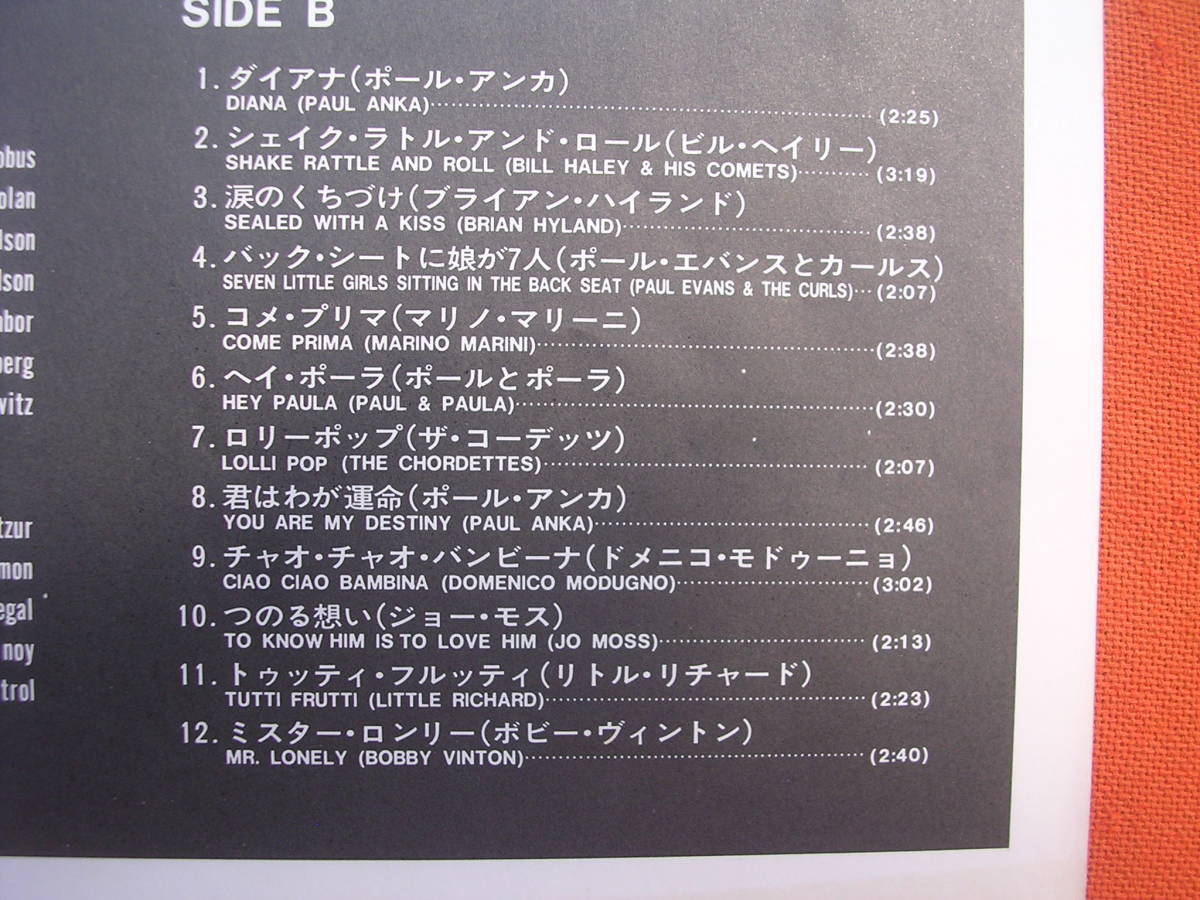 SIDE B
1. ダイアナ(ポール・アンカ)
DIANA (PAUL ANKA) (2:25)
2. シェイク・ラトル・アンド・ロール(ビル・ヘイリー)
SHAKE RATTLE AND ROLL (BILL HALEY & HIS COMETS) (3:19)
3. 涙のくちづけ(ブライアン・ハイランド)
SEALED WITH A KISS (BRIAN HYLAND) (2:38)
4. バック・シートに娘が7人(ポール・エバンスとカールス)
SEVEN LITTLE GIRLS SITTING IN THE BACK SEAT (PAUL EVANS & THE CURLS) (2:07)
5. コメ・プリマ(マリノ・マリーニ)
COME PRIMA (MARINO MARINI) (2:38)
6. ヘイ・ポーラ(ポールとポーラ)
HEY PAULA (PAUL & PAULA) (2:30)
7. ロリーポップ(ザ・コーデッツ)
LOLLI POP (THE CHORDETTES) (2:07)
8. 君はわが運命(ポール・アンカ)
YOU ARE MY DESTINY (PAUL ANKA) (2:46)
9. チャオ・チャオ・バンビーナ(ドメニコ・モドゥーニョ)
CIAO CIAO BAMBINA (DOMENICO MODUGNO) (3:02)
10. つのる想い(ジョー・モス)
TO KNOW HIM IS TO LOVE HIM (JO MOSS) (2:13)
11. トゥッティ・フルッティ(リトル・リチャード)
TUTTI FRUTTI (LITTLE RICHARD) (2:23)
12. ミスター・ロンリー(ボビー・ヴィントン)
MR. LONELY (BOBBY VINTON) (2:40)